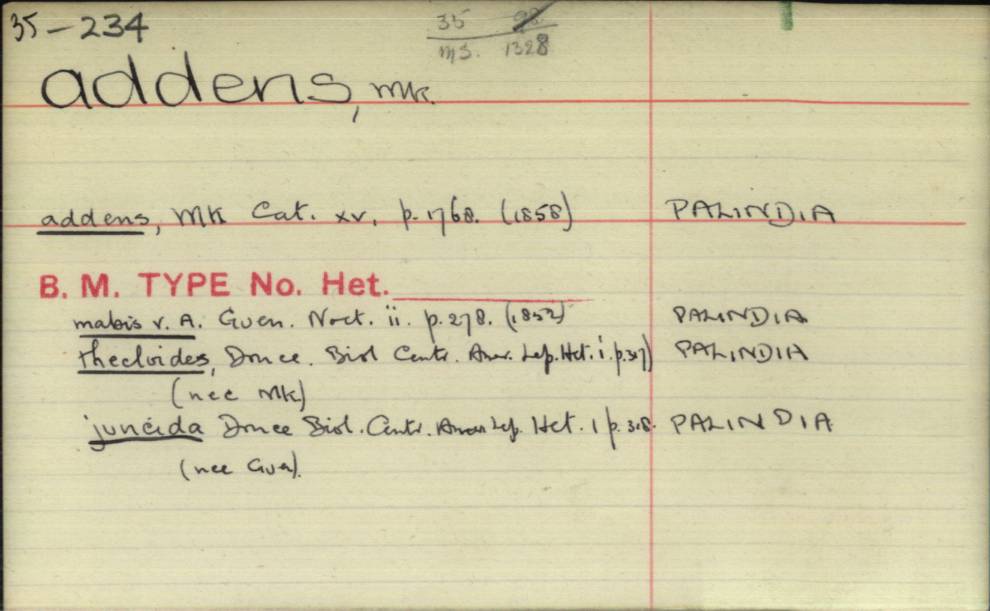 35-234
35 98
MS. 1328
addens, Mk.
addens, Mk Cat. xv, p. 1768. (1858) PALINDIA
B. M. TYPE No. Het.
mabis v. A. Guen. Noct. ii. p. 278. (1852) PALINDIA
thecloides, Druce. Biol Centr. Amer. Lep. Het. i. p. 317) PALINDIA
(nec Mk)
juncida Druce Biol. Centr. Amer Lep. Het. 1 p. 318. PALINDIA
(nec Gue).